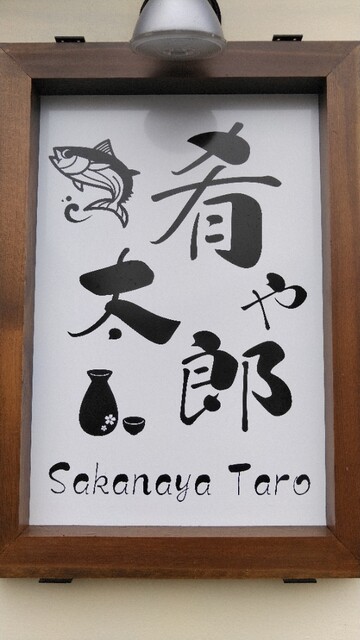 肴や
太郎
Sakanaya Taro